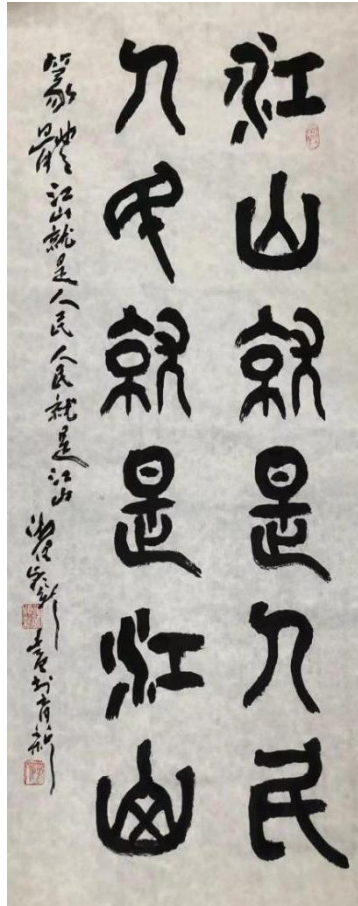 江山就是人民
人民就是江山
篆體江山就是人民人民就是江山